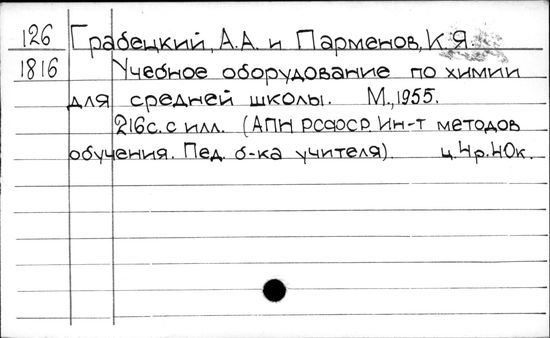 126 Грабецкий, А.А. и Парменов, К.Я.
1816 Учебное оборудование по химии
для средней школы. М., 1955.
216с. с илл. (АПН РСФСР. Ин-т методов
обучения. Пед. б-ка учителя). ц. 4р. 40к.